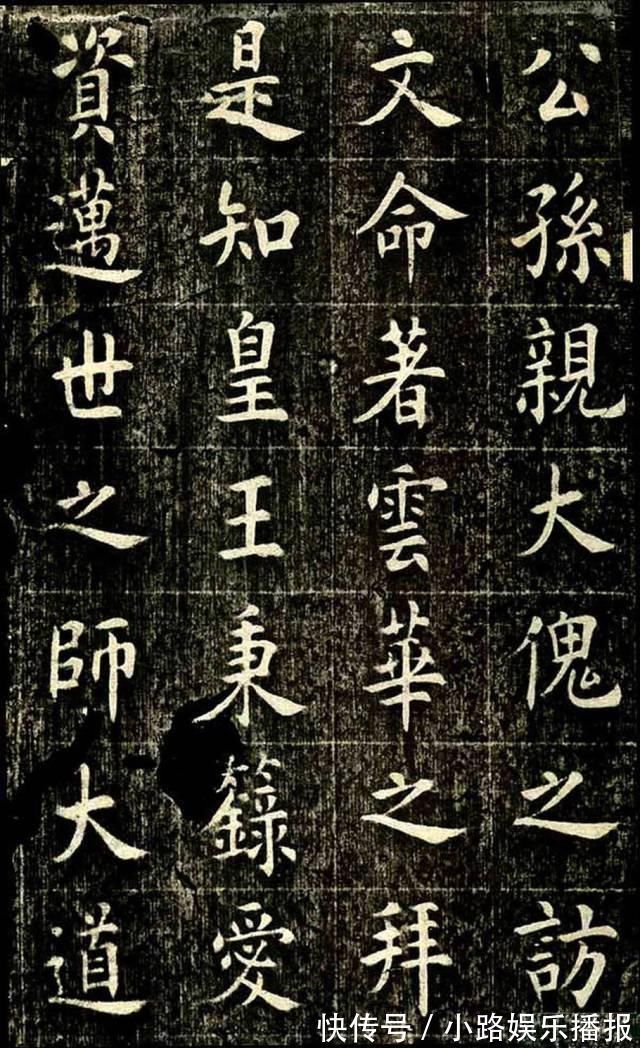 公孫親大傀之訪
文命著雲華之拜
是知皇王秉籙愛
資邁世之師大道
快传号 / 小路娱乐播报